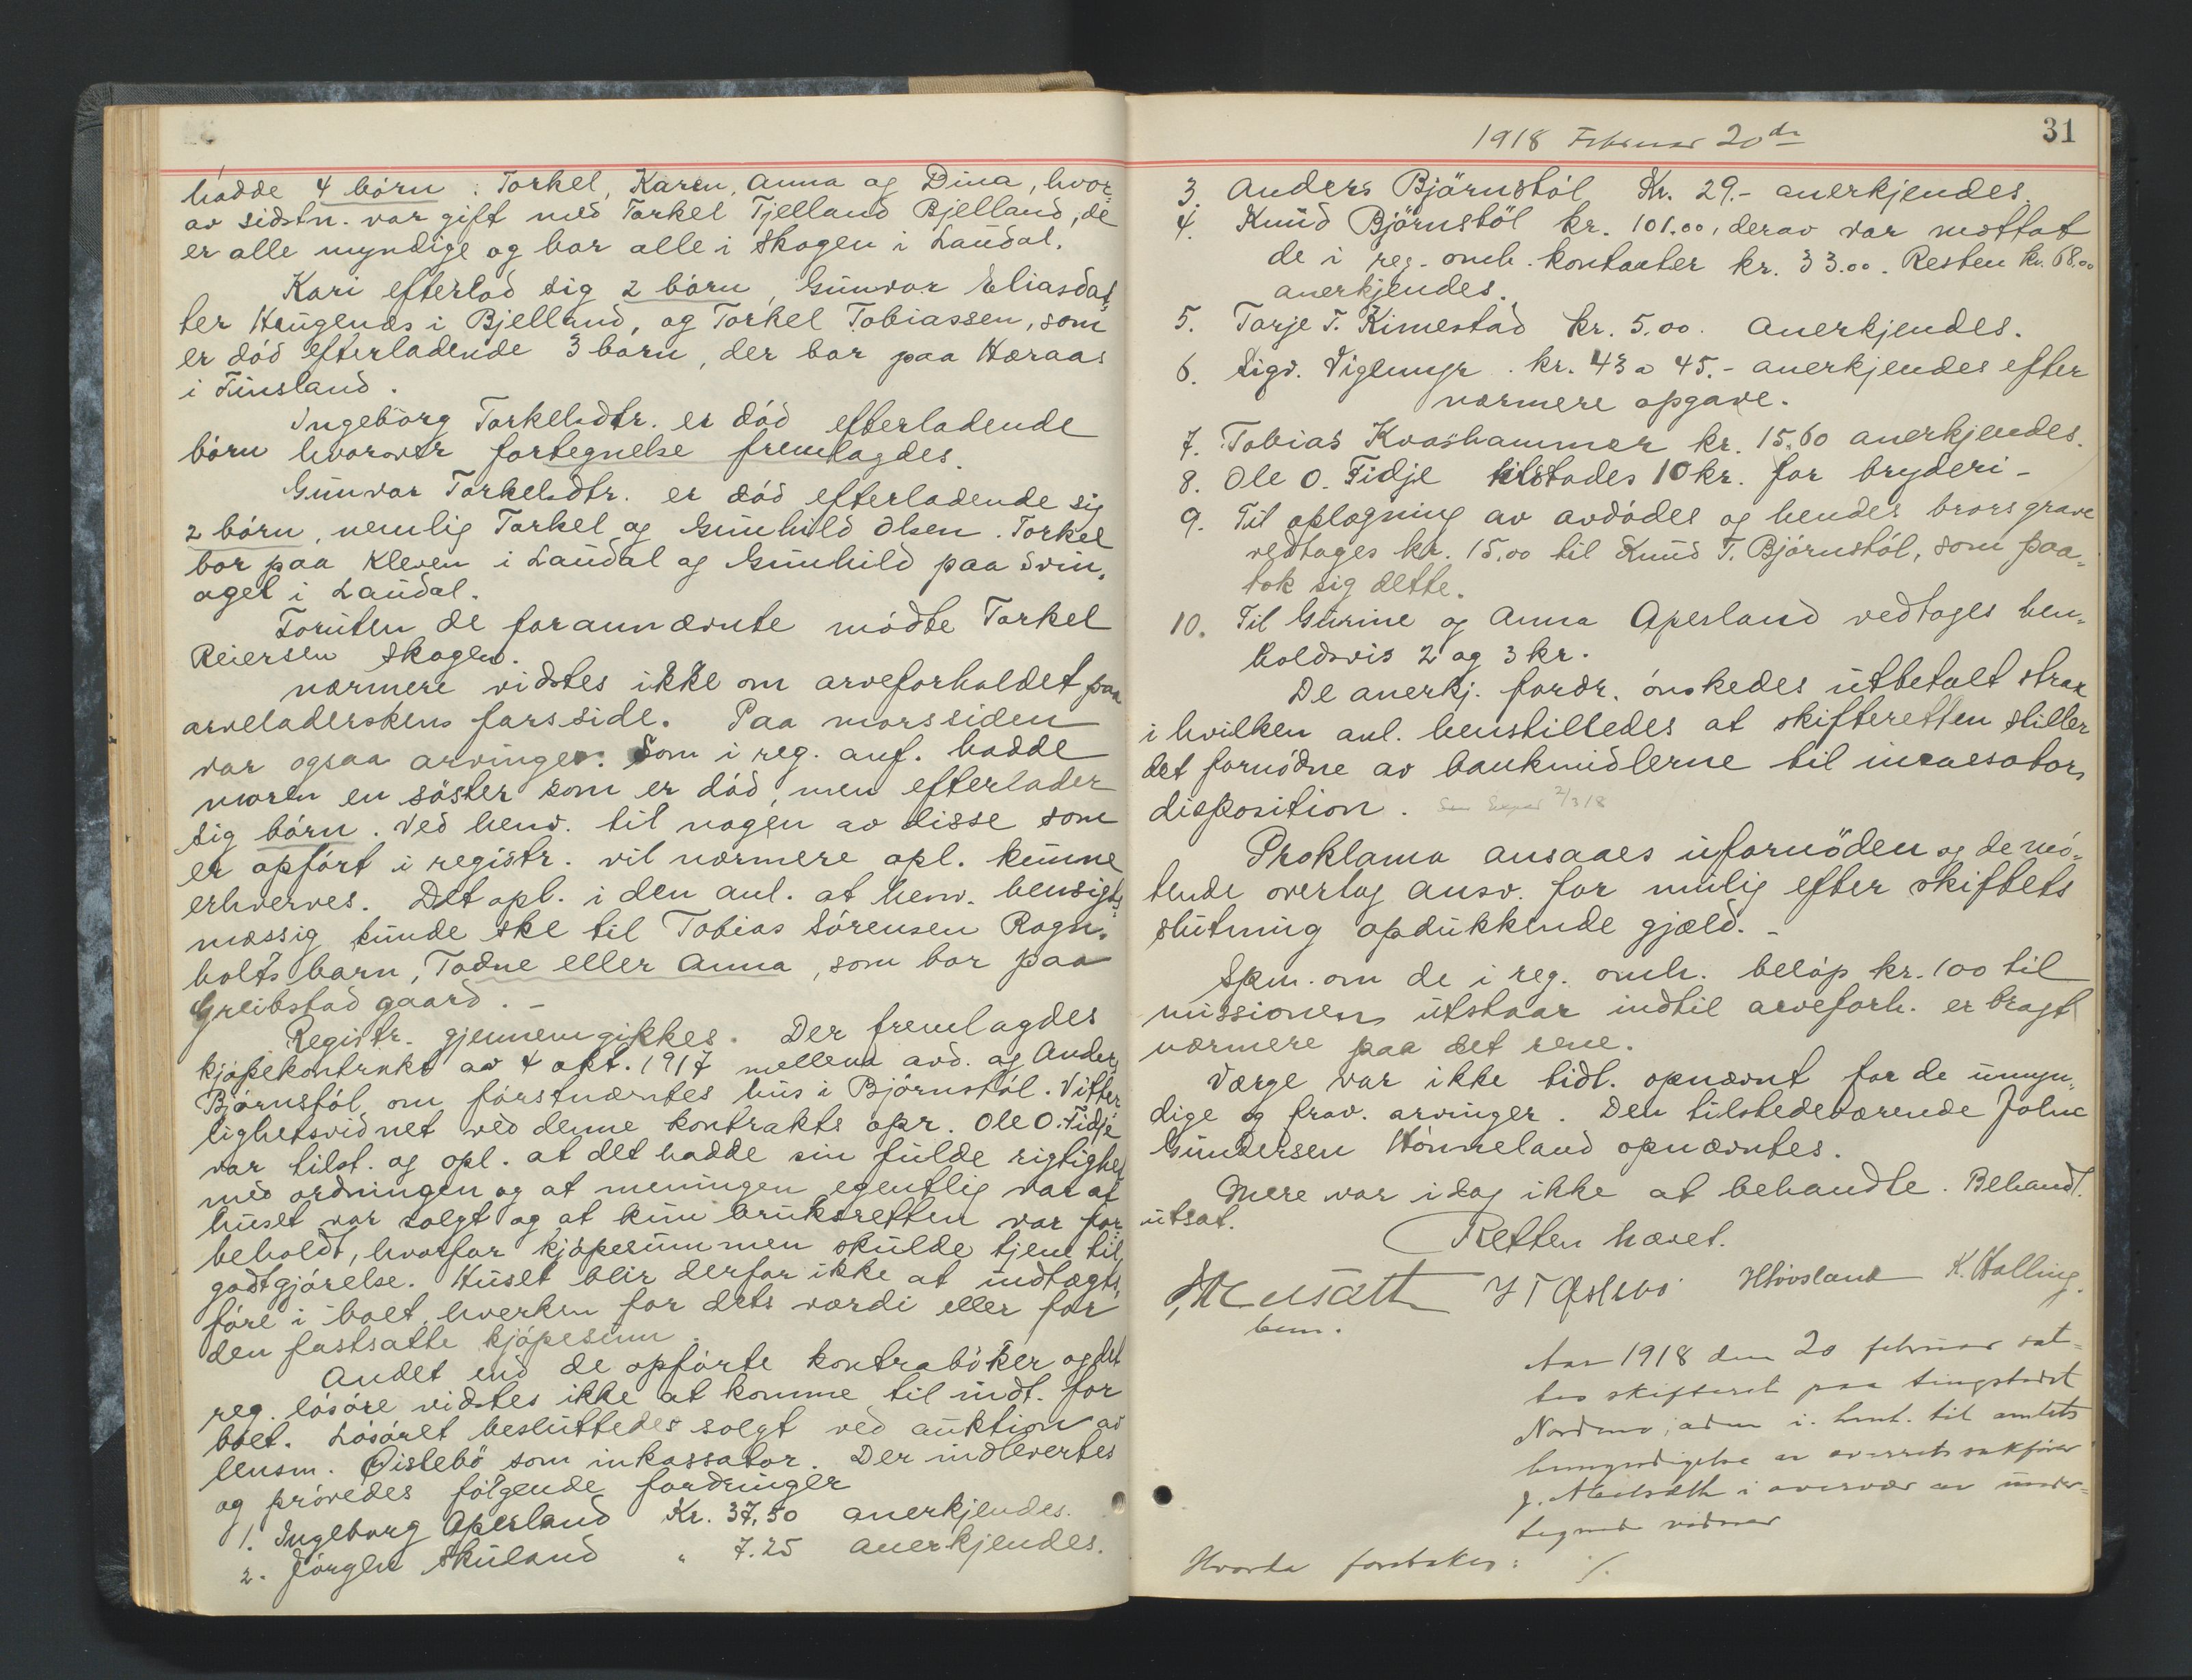 hadde 4 börn: Torkel, Karen, Anna og Dina, hvor-
av sidstn. var gift med Torkel Tjelland Bjelland, de
er alle myndige og bor alle i Skogen i Laudal.
Kari efterlod sig 2 börn, Gunvor Eliasdat-
ter Haugenes i Bjelland, og Torkel Tobiassen, som
er död efterladende 3 barn, der bor paa Haraas
i Finsland.
Ingeborg Torkelsdtr. er död efterladende
börn hvorover fortegnelse fremlagdes.
Gunvor Torkelsdtr. er död efterladende sig
2 börn, nemlig Torkel og Gunhild Olsen. Torkel
bor paa Kleven i Laudal og Gunhild paa Svin-
aget i Laudal.
Foruten de forannævnte mödte Torkel
Reiersen Skogen.
nærmere vidstes ikke om arveforholdet paa
arveladerskens farsside. Paa morssiden
var ogsaa arvinger. Som i reg. anf. hadde
moren en söster som er död, men efterlader
sig börn. Ved henv. til nogen av disse som
er opfört i registr. vil nærmere opl. kunne
erhverves. Det opl. i den anl. at henv. hensigts-
mæssig kunde ske til Tobias Sörensen Rogn-
holts barn, Todne eller Anna, som bor paa
Greibstad gaard. -
Registr. gjennemgikkes. Der fremlagdes
kjöpekontrakt av 4 okt. 1917 mellem avd. og Anders
Björnstöl om förstnævntes hus i Björnstöl. Vitter-
lighetsvidnet ved denne kontrakts opr. Ole O. Fidje
var tilst. og opl. at det hadde sin fulde rigtighet
med ordningen og at meningen egentlig var at
huset var solgt og at kun bruksretten var for-
beholdt, hvorfor kjöpesummen skulde tjene til
godtgjörelse. Huset blir derfor ikke at indtægts-
före i boet hverken for dets værdi eller for
den fastsatte kjöpesum.
Andet end de opförte kontraböker og det
reg. lösöre vidstes ikke at komme til indt. for
boet. Lösöret besluttedes solgt ved auktion av
lensm. Øislebö som inkassator. Der indlevertes
og prövedes fölgende fordringer
1. Ingeborg Aperland Kr. 37,50 anerkjendes.
2. Jörgen Skuland " 7.25 anerkjendes.
1918 Februar 20de
31
3. Anders Björnstöl Kr. 29.- anerkjendes.
4. Knud Björnstöl kr. 101.00, derav var mottat
de i reg. omh. kontanter kr. 33.00. Resten kr. 68.00
anerkjendes.
5. Tarje T. Kimestad kr. 5.00. anerkjendes.
6. Sigv. Viglemyr. kr. 43 a 45.- anerkjendes efter
nærmere opgave.
7. Tobias Kvashammer kr. 15.60 anerkjendes.
8. Ole O. Fidje tilstodes 10 kr. for bryderi -
9. Til oplogning av avdödes og hendes brors grave
vedtages kr. 15.00 til Knud T. Björnstöl, som paa-
tok sig dette.
10. Til Gurine og Anna Aperland vedtages hen-
holdsvis 2 og 3 kr.
De anerkj. fordr. önskedes utbetalt strax
i hvilken anl. henstilledes at skifteretten stiller
det fornödne av bankmidlerne til incassators
disposition. 2/3 18
Proklama ansaaes ufornöden og de mö-
tende overtog ansv. for mulig efter skiftets
slutning opdukkende gjæld. -
Spm. om de i reg. omh. belöp kr. 100 til
missionen utstaar indtil arveforh. er bragt
nærmere paa det rene.
Værge var ikke tidl. opnævnt for de umyn-
dige og frav. arvinger. Den tilstedeværende Johne
Gundersen Hönneland opnævntes.
Mere var idag ikke at behandle. Behandl.
utsat.
Retten hævet.
H Hovsland K. Halling.
bem.
Aar 1918 den 20 februar sat-
tes skifteret paa tingstedet
i. henh. til amtets
bemyndigelse av overretssakförer
i overvær av under-
tegnede vidner
Hvorda foretokes: ./.